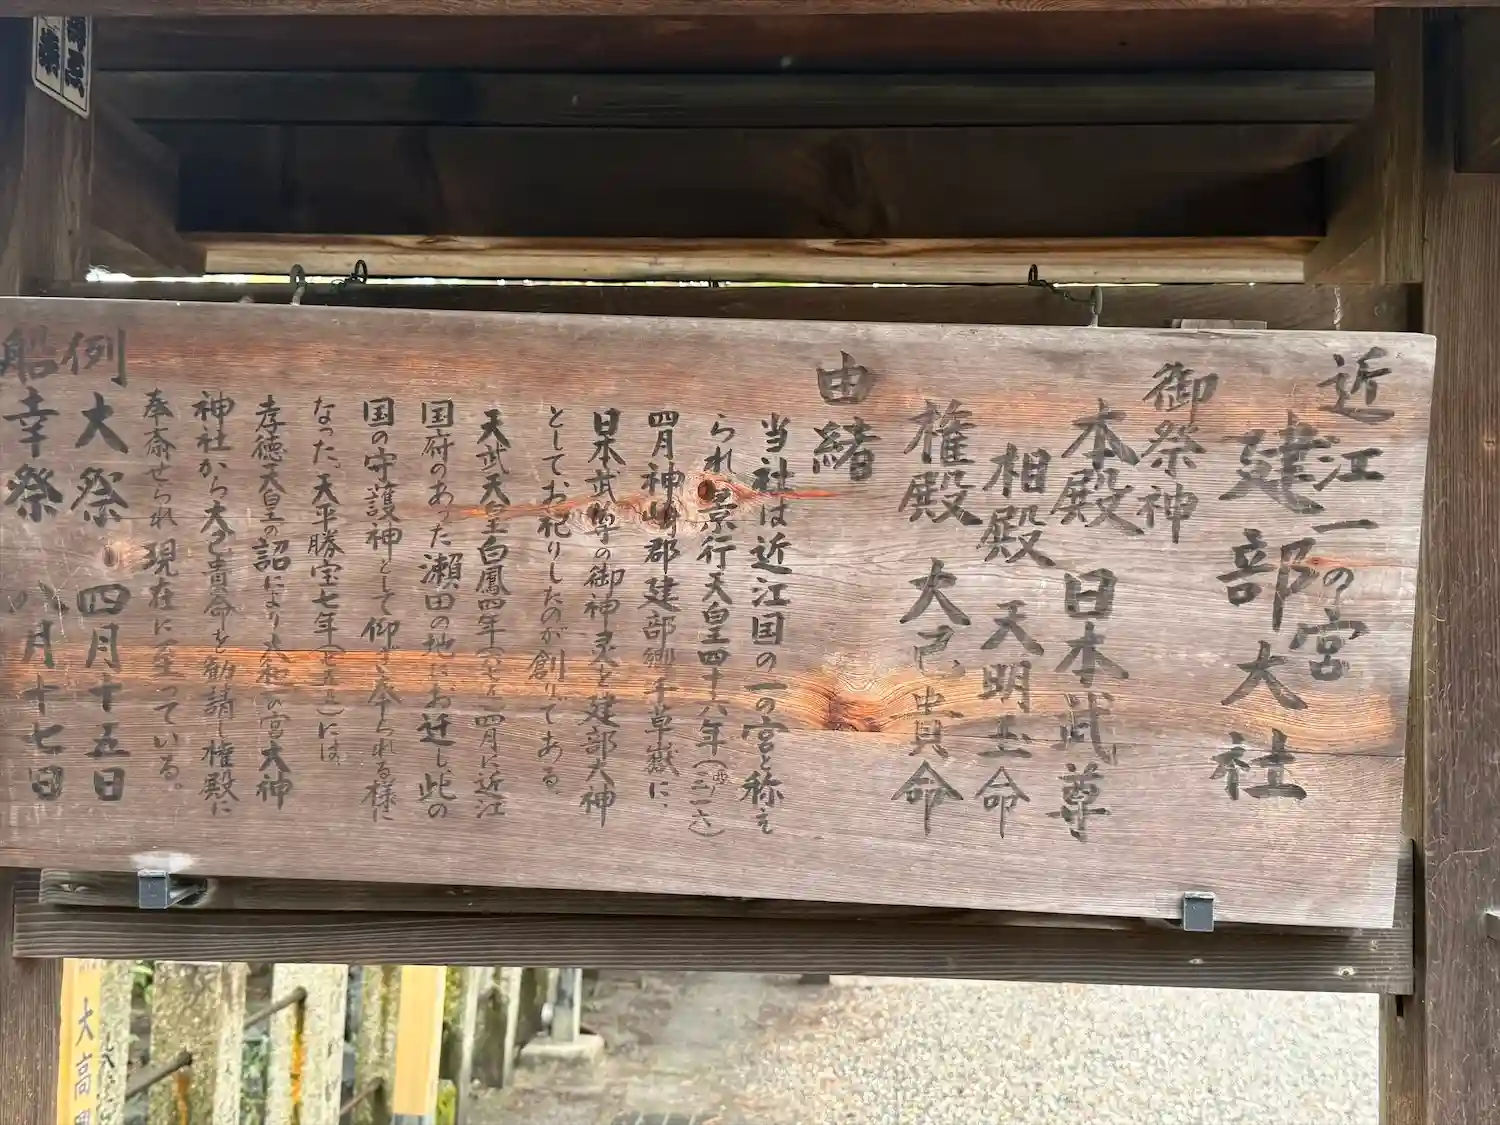 近江一の宮
建部大社
御祭神
本殿 日本武尊
相殿 天明玉命
権殿 大己貴命
由緒
当社は近江国の一の宮と称え
られ景行天皇四十六年(西
四月神崎郡建部郷千草嶽に、
日本武尊の御神霊を建部大神
としてお祀りしたのが創りである。
天武天皇白鳳四年(六七五)四月に近江
国府のあった瀬田の地にお迁し此の
国の守護神として仰ぎ奉られる様に
なった。天平勝宝七年(七五五)には、
孝徳天皇の詔により大和一の宮大神
神社から大己貴命を勧請し権殿に
奉斎せられ現在に至っている。
例大祭 四月十五日
船幸祭 八月十七日
大高